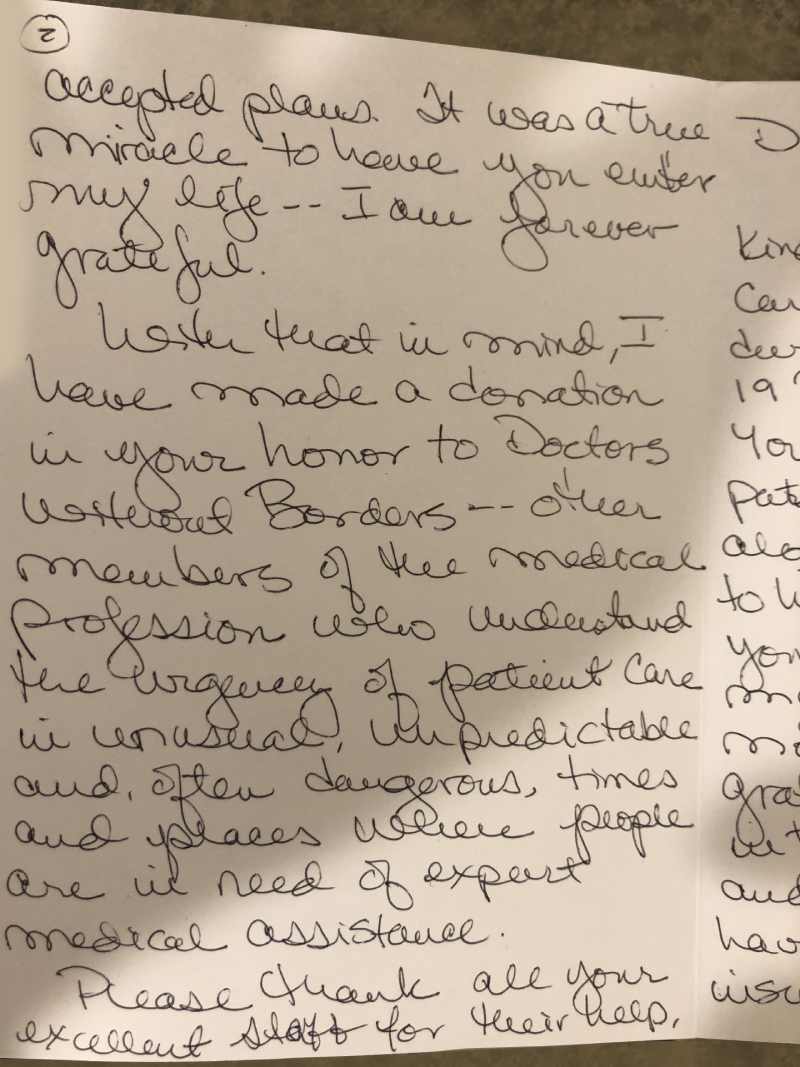 2
accepted plans. It was a true
miracle to have you enter
my life -- I am forever
grateful.
With that in mind, I
have made a donation
in your honor to Doctors
Without Borders -- other
members of the medical
profession who understand
the urgency of patient care
in unusual, unpredictable
and, often dangerous, times
and places where people
are in need of expert
medical assistance.
Please thank all your
excellent staff for their help,
D
Kin
Car
19
You
pat
alo
to h
you
gra
and
hav
insu